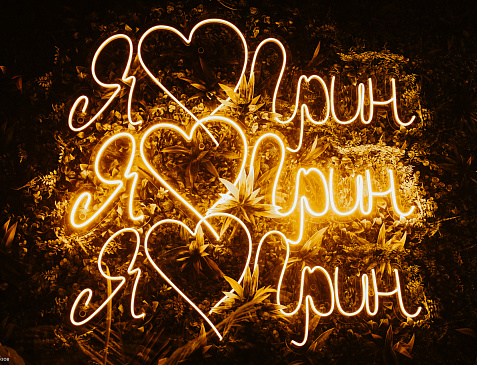 Я ♥ Грин
Я ♥ Грин
Я ♥ Грин